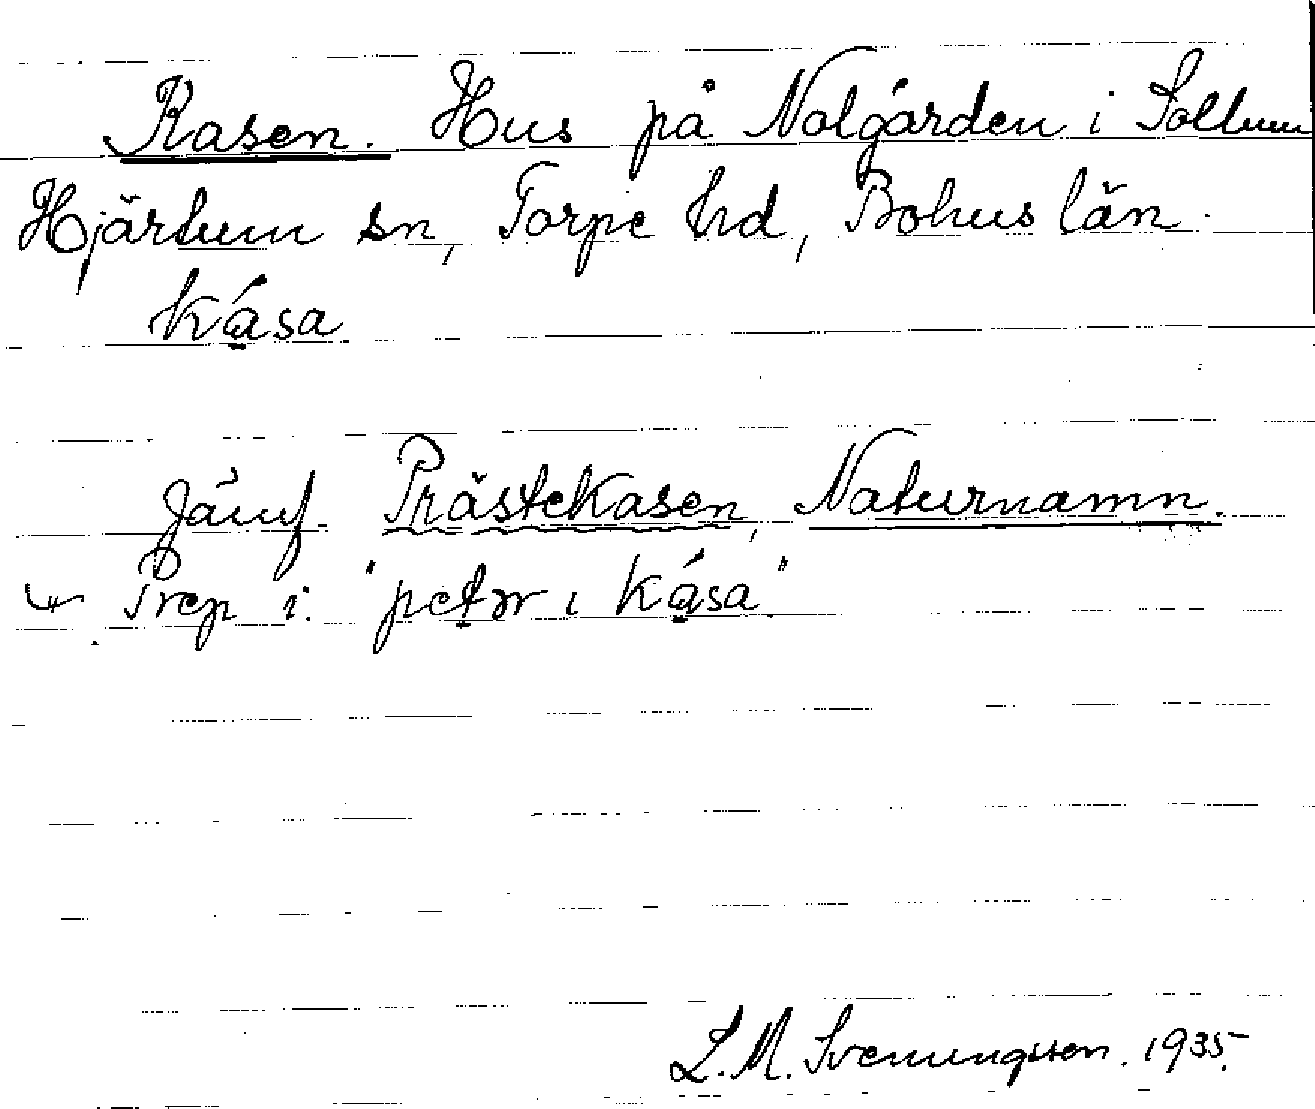 Kasen. Hus på Nolgården i Sollum
Hjärtum sn, Torpe hd, Bohus län.
kása
Jämf. Prästekasen, Naturnamn.
Prep i. "petər i kása"
L.M. Svenungsson. 1935.